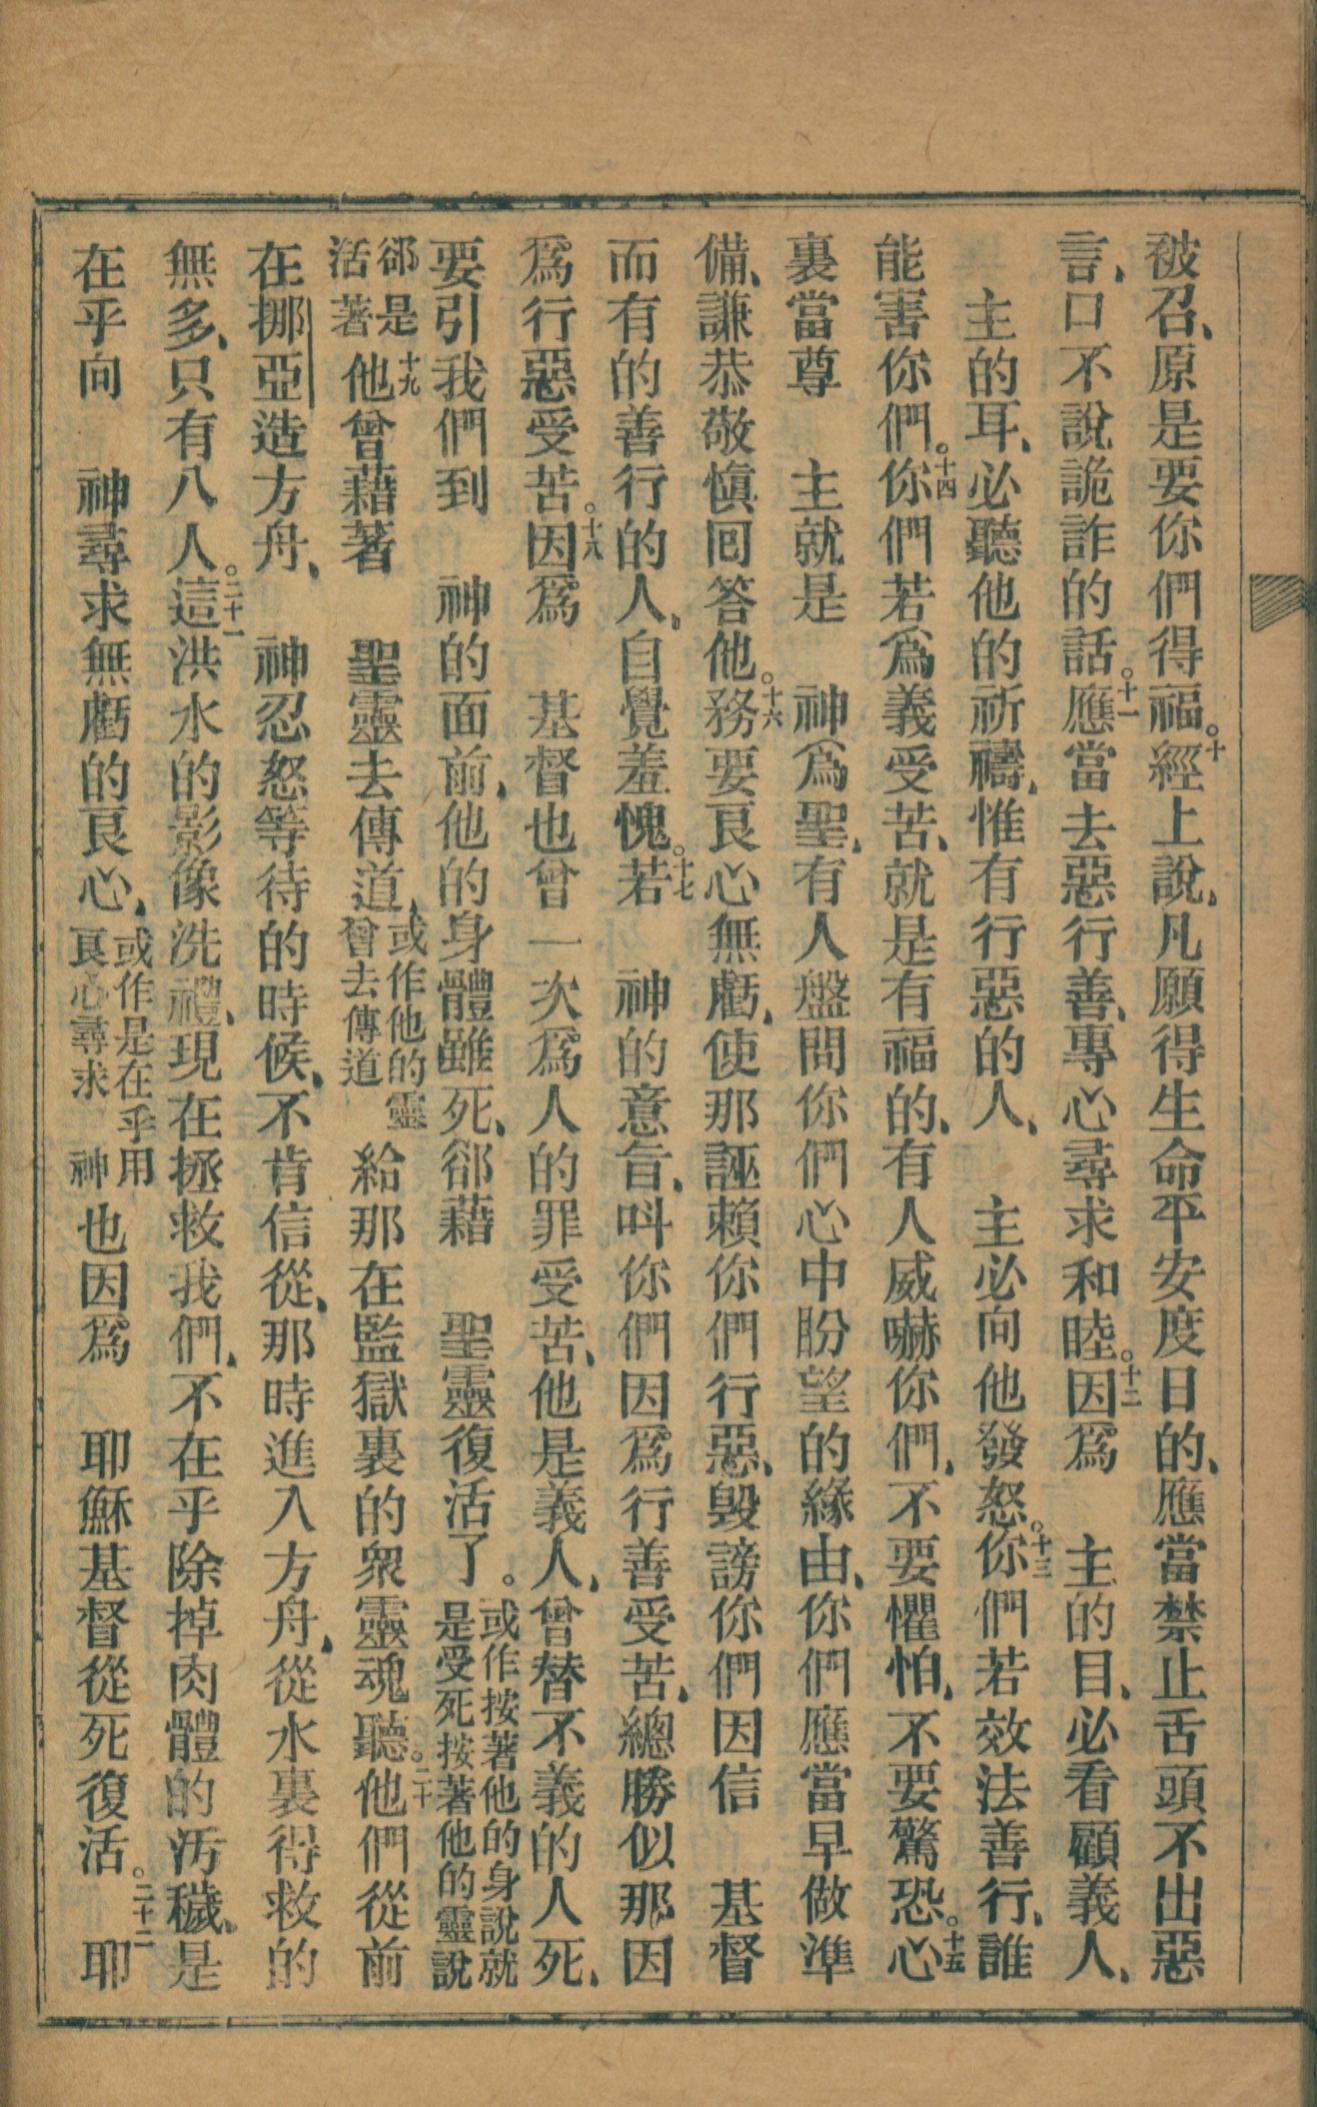 被召、原是要你們得福。十經上說、凡願得生命平安度日的、應當禁止舌頭不出惡
言、口不說詭詐的話。十一應當去惡行善、專心尋求和睦。十二因爲　主的目、必看顧義人、
主的耳、必聽他的祈禱、惟有行惡的人、　主必向他發怒。十三你們若效法善行、誰
能害你們。十四你們若爲義受苦、就是有福的、有人威嚇你們、不要懼怕、不要驚恐。十五心
裏當尊　主就是　神爲聖、有人盤問你們心中盼望的緣由、你們應當早做準
備、謙恭敬愼回答他。十六務要良心無虧、使那誣賴你們行惡、毀謗你們因信　基督
而有的善行的人、自覺羞愧。十七若　神的意旨、呌你們因爲行善受苦、總勝似那因
爲行惡受苦。十八因爲　基督也曾一次爲人的罪受苦、他是義人、曾替不義的人死、
要引我們到　神的面前、他的身體雖死、郤藉　聖靈復活了。或作按著他的身說就是受死按著他的靈說
郤是活著十九他曾藉著　聖靈去傳道、或作他的靈曾去傳道給那在監獄裏的衆靈魂聽。二十他們從前
在挪亞造方舟、　神忍怒等待的時候、不肯信從、那時進入方舟、從水裏得救的
無多、只有八人。二十一這洪水的影像洗禮、現在拯救我們、不在乎除掉肉體的汚穢、是
在乎向　神尋求無虧的良心、或作是在乎用良心尋求　神也因爲　耶穌基督從死復活。二十二　耶